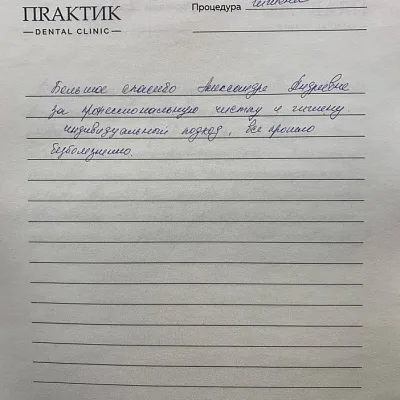 ПRАКТИК
— DENTAL CLINIC —
Процедура гигиена
Большое спасибо Александре Андреевне
за профессиональную чистку и гигиену
индивидуальный подход, все прошло
безболезненно.